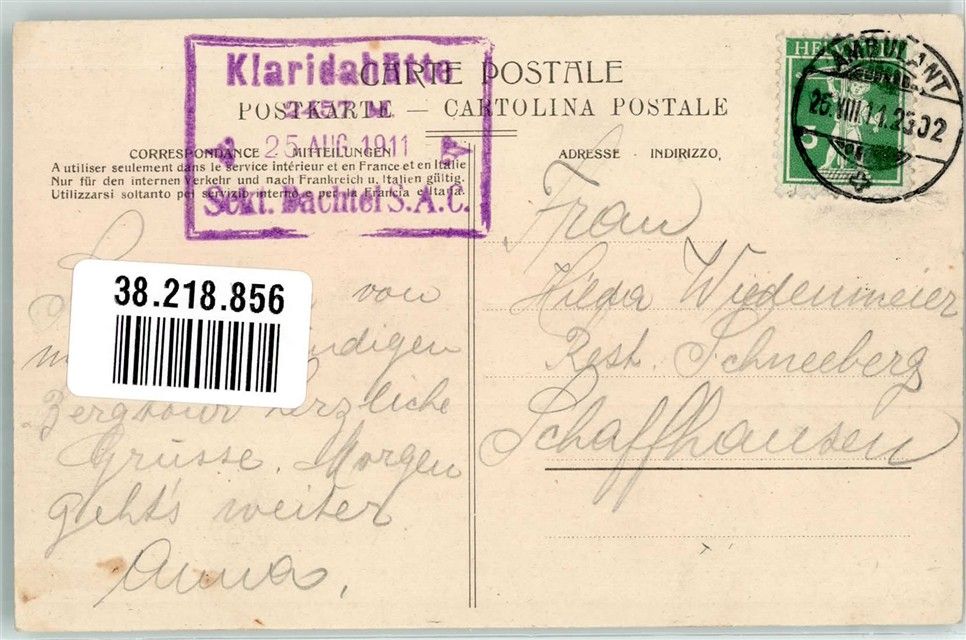 CARTE POSTALE
POSTKARTE — CARTOLINA POSTALE
CORRESPONDANCE MITTEILUNGEN
A utiliser seulement dans le service intérieur et en France et en Italie
Nur für den internen Verkehr und nach Frankreich u. Italien gültig.
Utilizzarsi soltanto pel servizio interno e per la Francia e Italia.
Klaridahütte
2457 M
25 AUG 1911
Sekt. Bachtel S.A.C.
ADRESSE · INDIRIZZO,
HELVETIA
5
AMBULANT
25.VIII.11.23
02
38.218.856
von
digen
Bergtour herzliche
Grüsse. Morgen
geht's weiter
Anna.
Frau
Hilda Wiedenmeier
Rest. Schneeberg
Schaffhausen